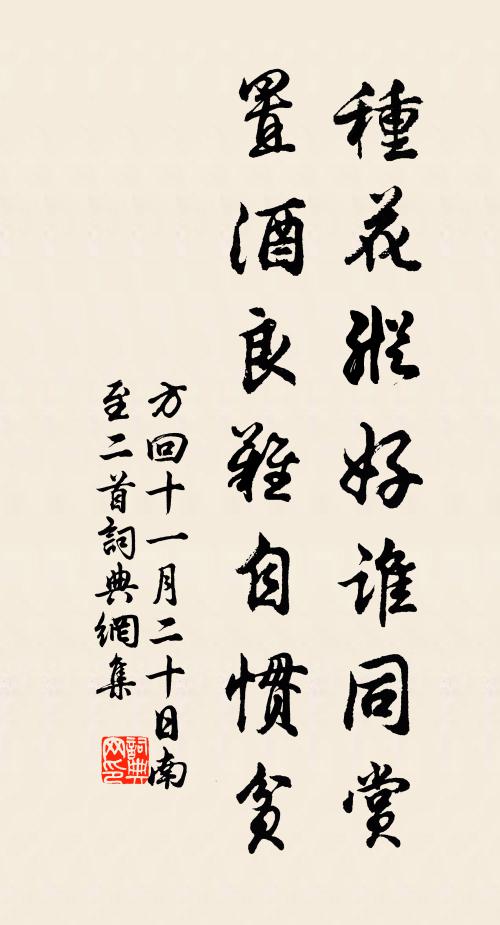 種花縱好誰同賞
置酒良難自慣貧
方回十一月二十日南
至二首詞典網集
詞典
网印